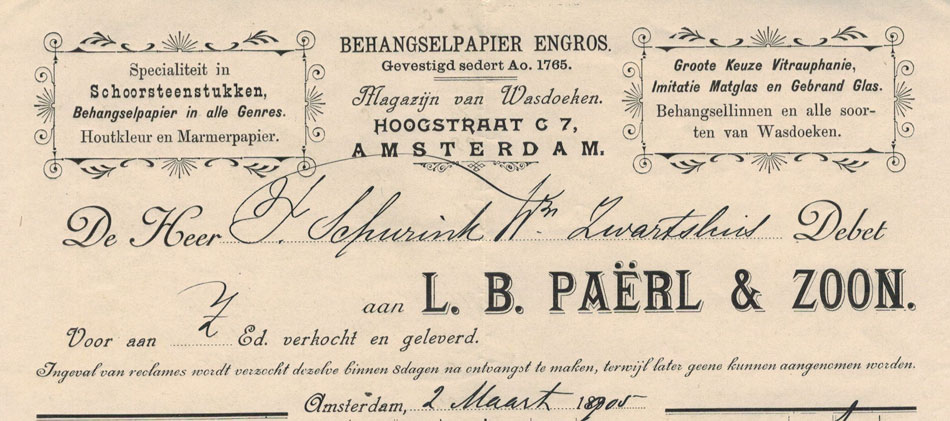 Specialiteit in
Schoorsteenstukken,
Behangselpapier in alle Genres.
Houtkleur en Marmerpapier.
BEHANGSELPAPIER ENGROS.
Gevestigd sedert Ao. 1765.
Magazijn van Wasdoeken.
HOOGSTRAAT C 7,
AMSTERDAM.
Groote Keuze Vitrauphanie,
Imitatie Matglas en Gebrand Glas.
Behangsellinnen en alle soor-
ten van Wasdoeken.
De Heer F. Schurink Wzn. Zwartsluis Debet
aan L. B. PAËRL & ZOON.
Voor aan Z Ed. verkocht en geleverd.
Ingeval van reclames wordt verzocht dezelve binnen 8dagen na ontvangst te maken, terwijl later geene kunnen aangenomen worden.
Amsterdam, 2 Maart 1905